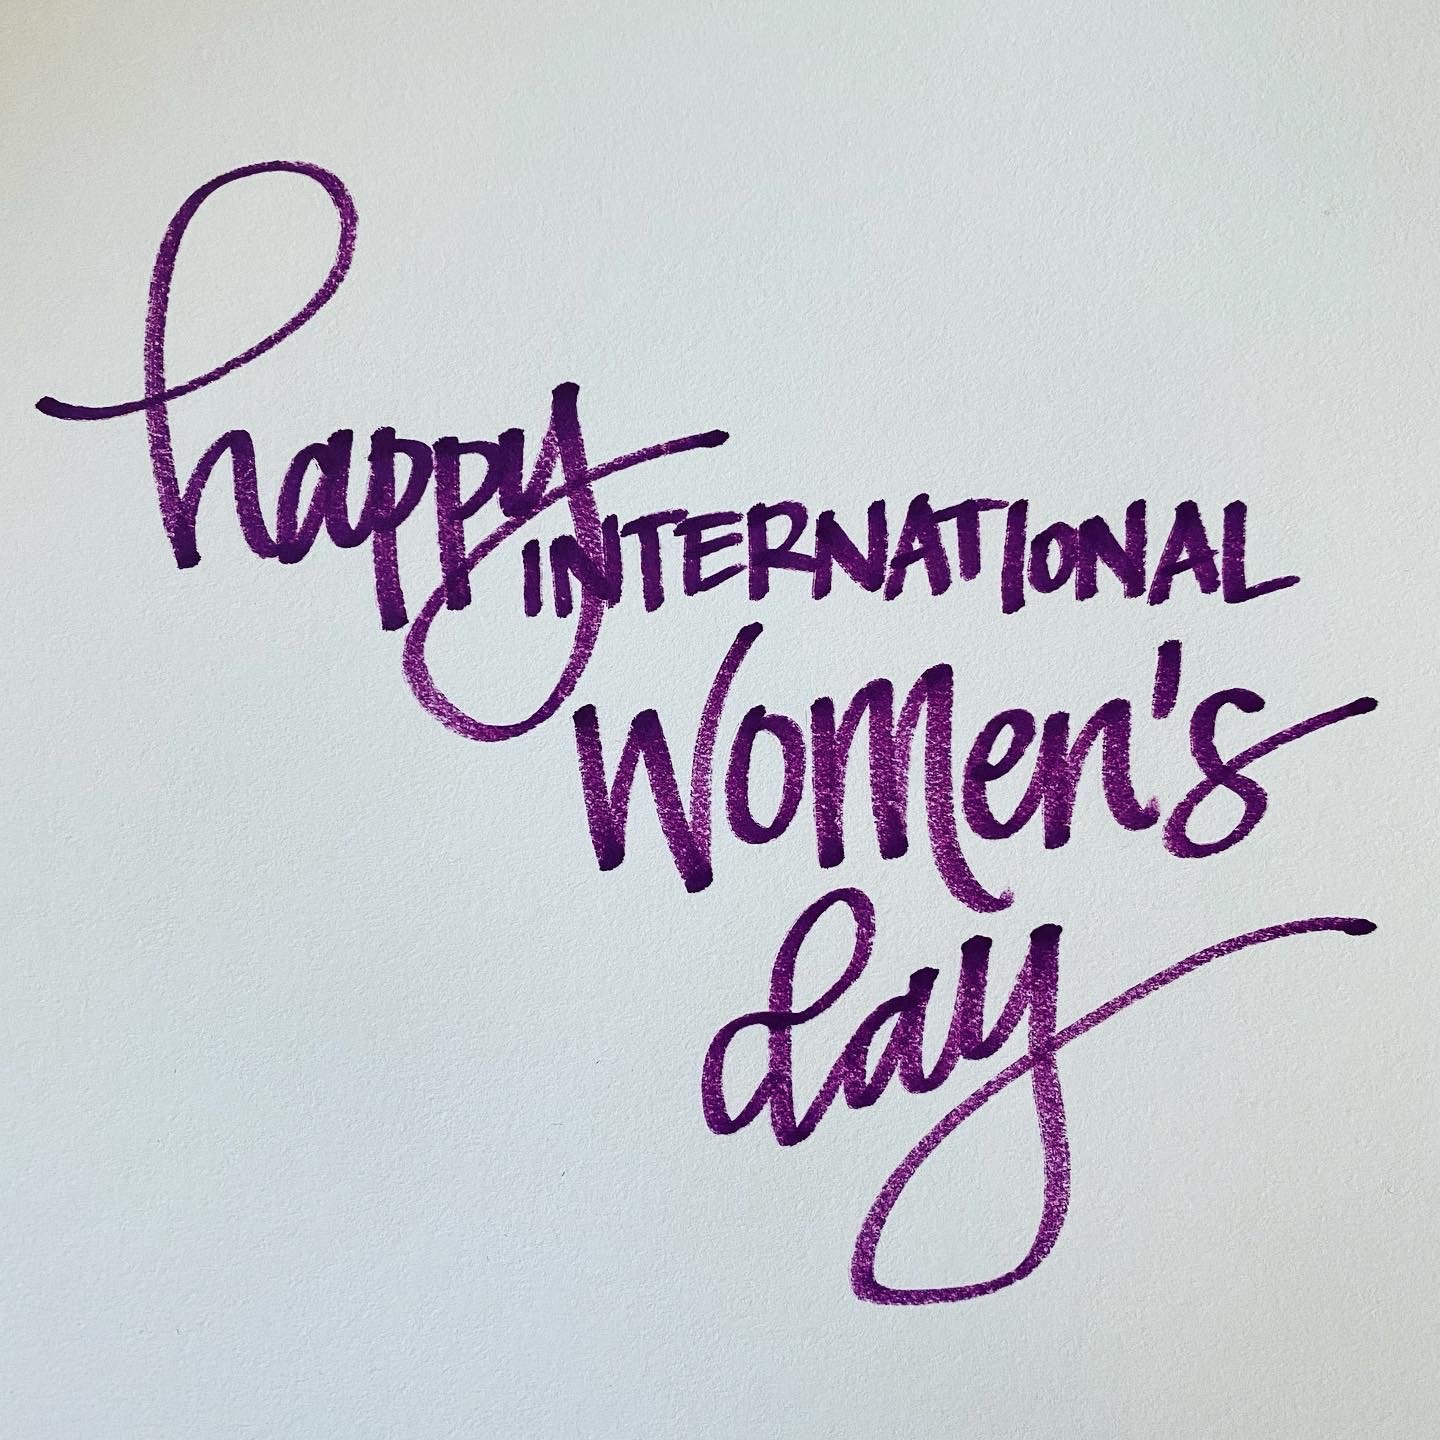 happy
INTERNATIONAL
Women's
day